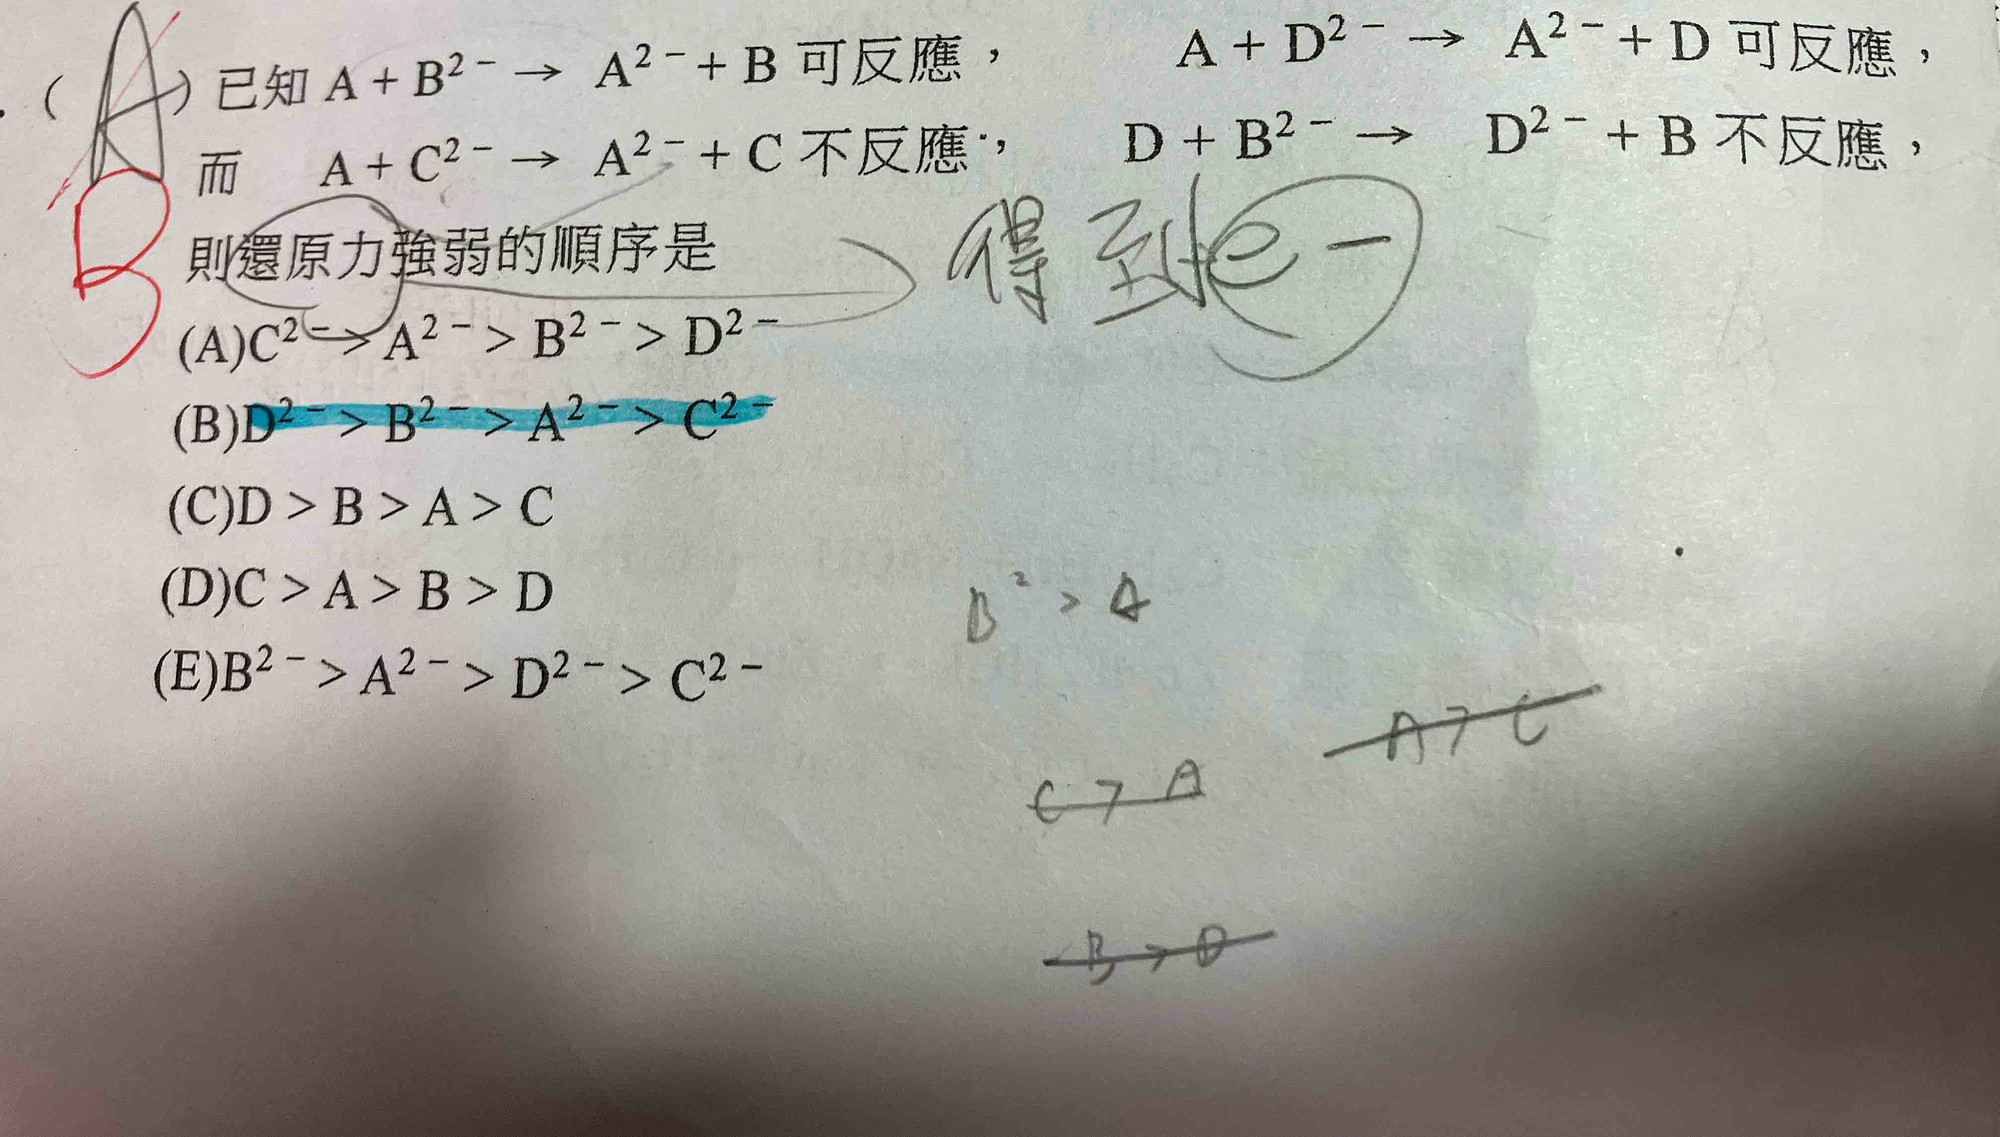 (A) 已知 A + B²⁻ → A²⁻ + B 可反應， A + D²⁻ → A²⁻ + D 可反應，
B
而 A + C²⁻ → A²⁻ + C 不反應， D + B²⁻ → D²⁻ + B 不反應，
則還原力強弱的順序是
得到e−
(A)C²⁻ > A²⁻ > B²⁻ > D²⁻
(B)D²⁻ > B²⁻ > A²⁻ > C²⁻
(C)D > B > A > C
(D)C > A > B > D
(E)B²⁻ > A²⁻ > D²⁻ > C²⁻
B² > A
A > C
C > A
B > D